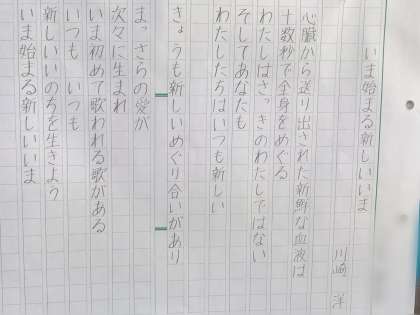 いま始まる新しいいま
川崎 洋
心臓から送り出された新鮮な血液は
十数秒で全身をめぐる
わたしはさっきのわたしではない
そしてあなたも
わたしたちはいつも新しい
きょうも新しいめぐり合いがあり
まっさらの愛が
次々に生まれ
いま初めて歌われる歌がある
いつも いつも
新しいいのちを生きよう
いま始まる新しいいま